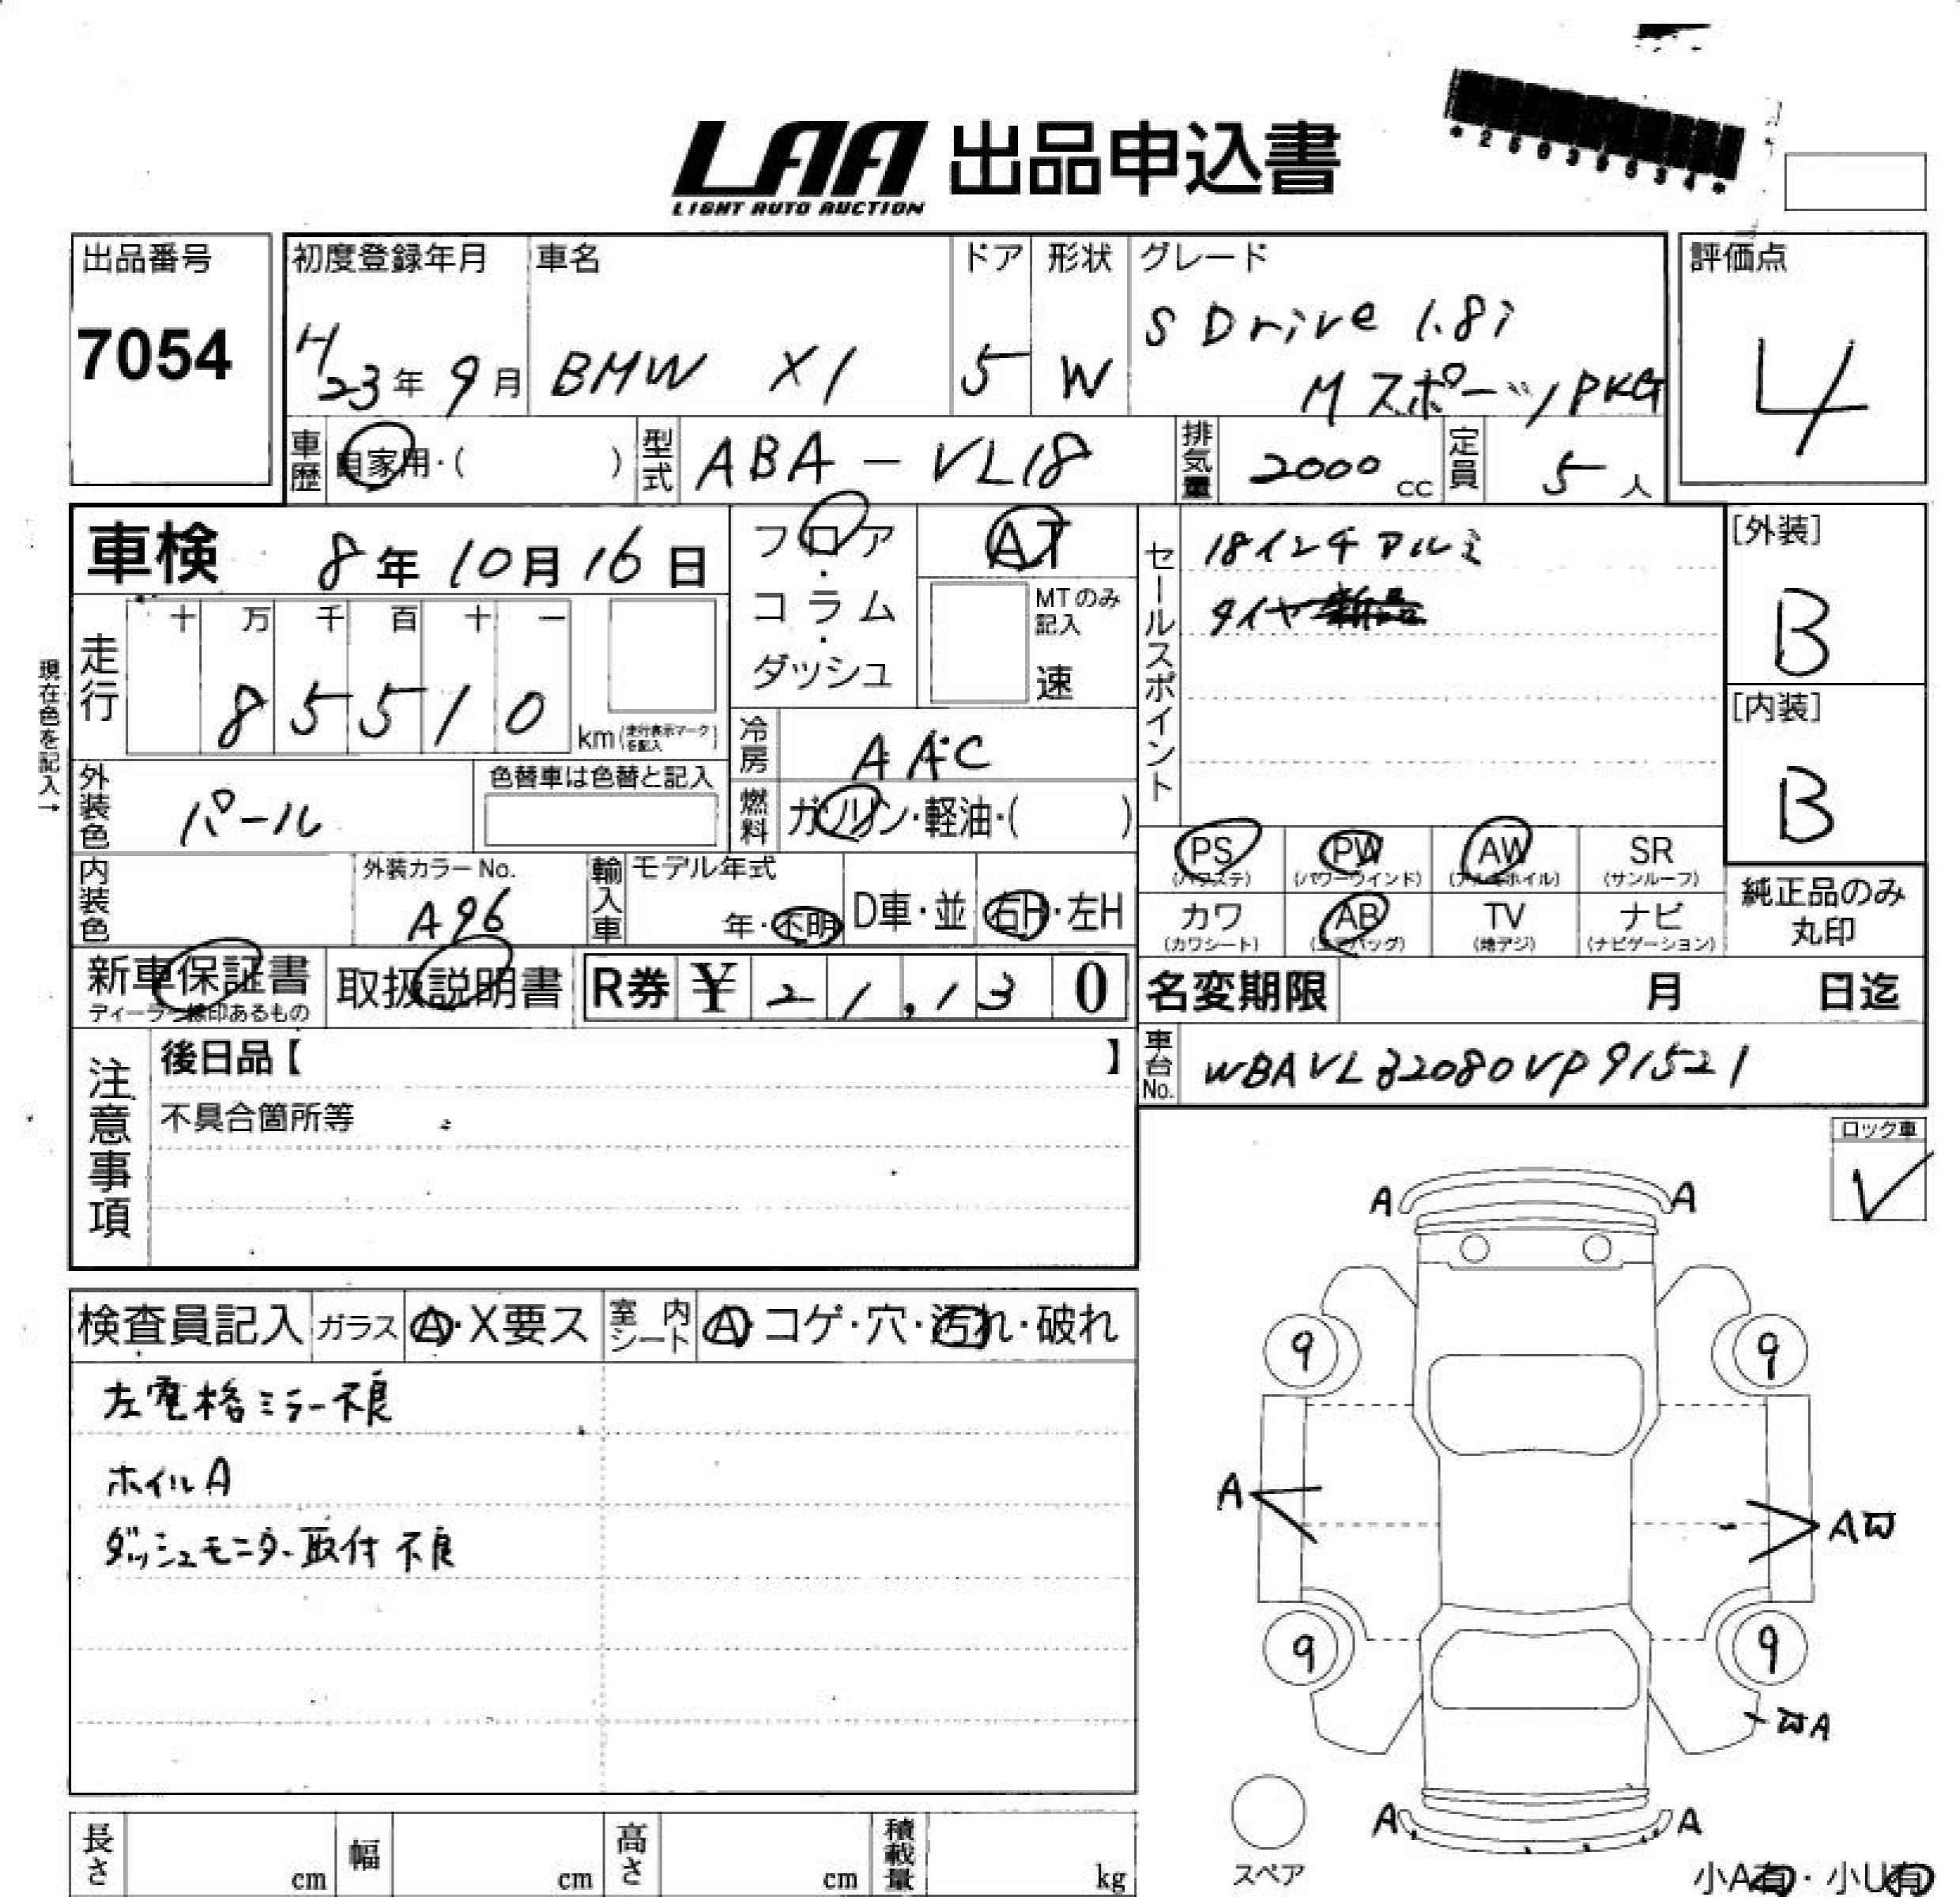 * 2503959534 *
LAA 出品申込書
LIGHT AUTO AUCTION
出品番号
7054
初度登録年月
H23年 9月
車名
BMW X1
ドア
5
形状
W
グレード
S Drive 1.8i
MスポーツPKG
評価点
4
車歴
自家用・( )
型式
ABA-VL18
排気量
2000 cc
定員
5 人
車検 8年 10月 16日
フロア・コラム・ダッシュ
AT
MTのみ記入
速
セールスポイント
18インチアルミ
タイヤ
[外装]
B
[内装]
B
現在色を記入→
走行
十 万 千 百 十 一
8 5 5 1 0
km(走行表示マークを記入)
冷房
AAC
燃料
ガソリン・軽油・( )
外装色
パール
色替車は色替と記入
内装色
外装カラーNo.
A96
輸入車
モデル年式
年・不明
D車・並
右H・左H
PS
(パワステ)
PW
(パワーウインド)
AW
(アルミホイル)
SR
(サンルーフ)
カワ
(カワシート)
AB
(エアバッグ)
TV
(地デジ)
ナビ
(ナビゲーション)
純正品のみ
丸印
新車保証書
ディーラー捺印あるもの
取扱説明書
R券 ¥ 21,130
名変期限 月 日迄
車台No.
WBAVL32080VP91521
注意事項
後日品【 】
不具合箇所等
ロック車
✓
検査員記入
ガラス
A・X要ス
室内シート
A・コゲ・穴・汚れ・破れ
左電格ミラー不良
ホイルA
ダッシュモニター取付不良
A A
9 9
A
AW
9 9
WA
A A
スペア
小A有・小U有
長さ cm
幅 cm
高さ cm
積載量 kg